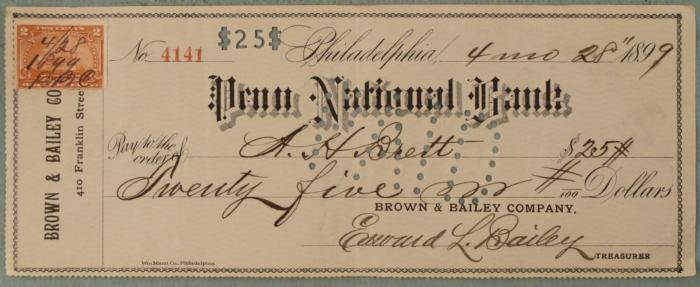 2 2
TWO CENTS
4/28
1899
BROWN & BAILEY CO
410 Franklin Stree
No. 4141 $25$ Philadelphia, 4 mo 28" 1899
Penn National Bank
Pay to the order of A. H. Brett $25#
Twenty five # /100 Dollars
BROWN & BAILEY COMPANY,
Edward L. Bailey
TREASURER
Wm. Mann Co., Philadelphia.